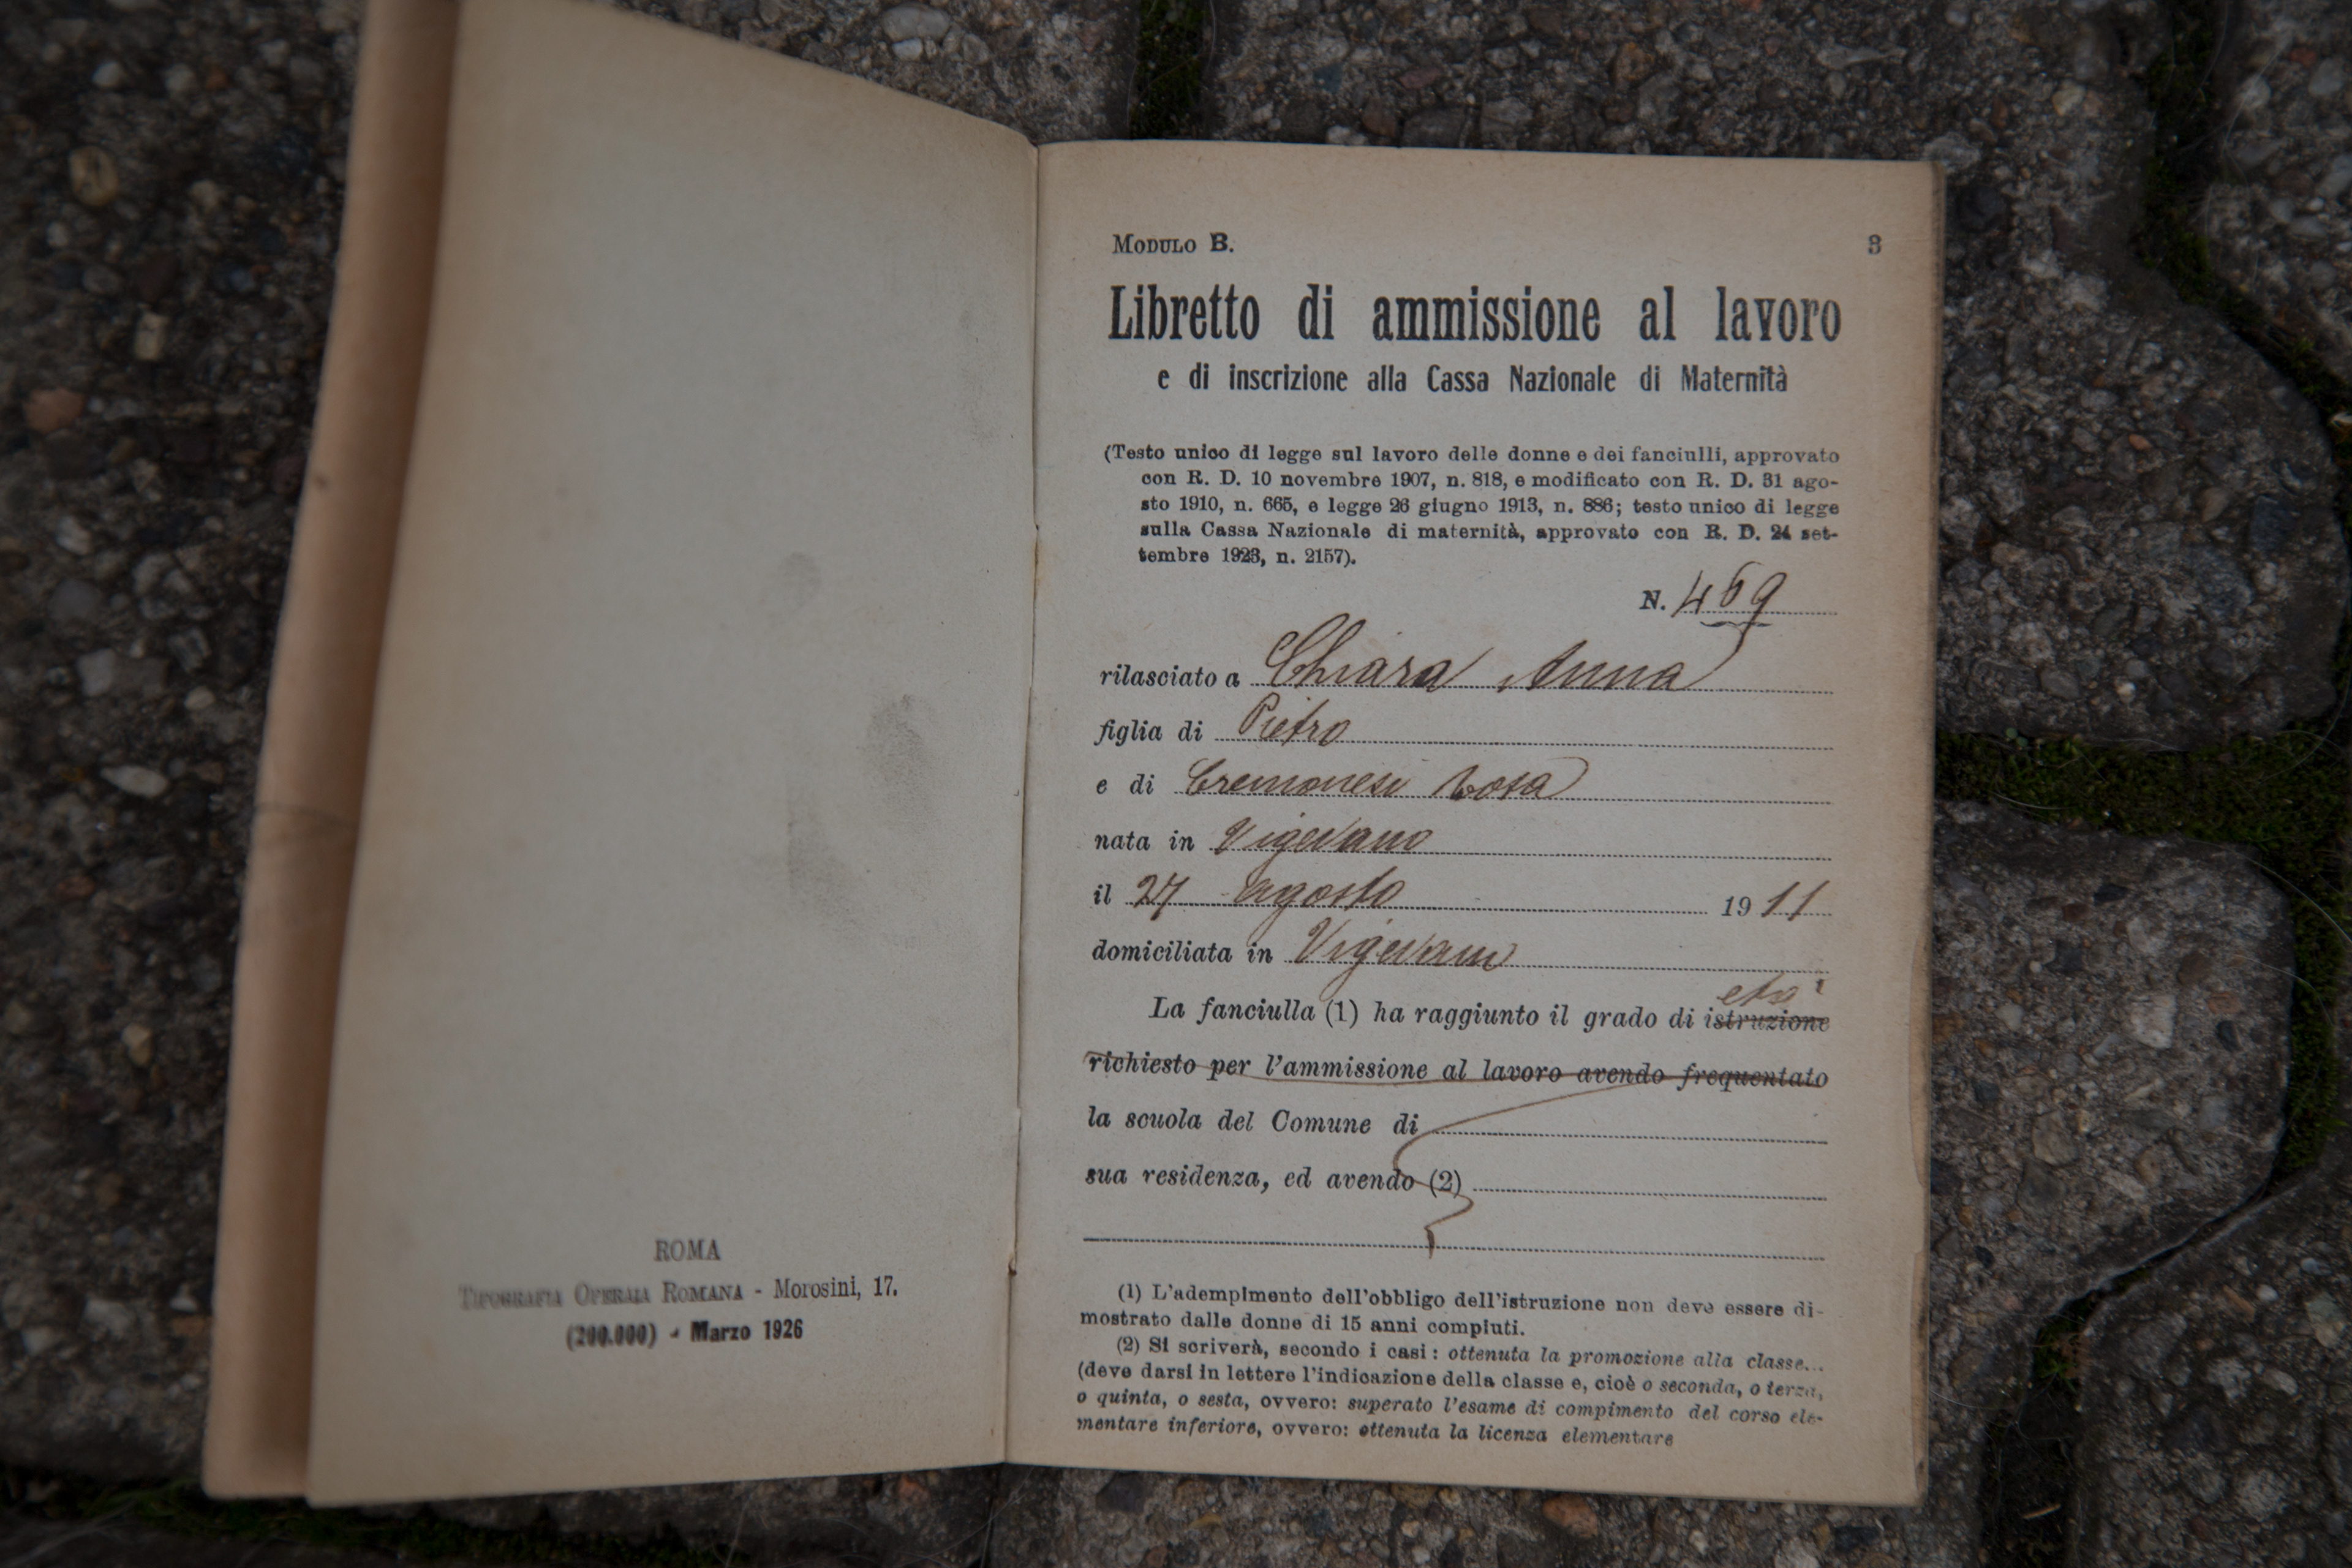 ROMA
TIPOGRAFIA OPERAIA ROMANA - Morosini, 17.
(200.000) - Marzo 1926
MODULO B.
3
Libretto di ammissione al lavoro
e di inscrizione alla Cassa Nazionale di Maternità
(Testo unico di legge sul lavoro delle donne e dei fanciulli, approvato
con R. D. 10 novembre 1907, n. 818, e modificato con R. D. 31 ago-
sto 1910, n. 665, e legge 26 giugno 1913, n. 886; testo unico di legge
sulla Cassa Nazionale di maternità, approvato con R. D. 24 set-
tembre 1923, n. 2157).
N. 469
rilasciato a Chiara Anna
figlia di Pietro
e di Cremonesi Rosa
nata in Vigevano
il 27 agosto 1911
domiciliata in Vigevano
età
La fanciulla (1) ha raggiunto il grado di istruzione
richiesto per l'ammissione al lavoro avendo frequentato
la scuola del Comune di
sua residenza, ed avendo (2)
(1) L'adempimento dell'obbligo dell'istruzione non deve essere di-
mostrato dalle donne di 15 anni compiuti.
(2) Si scriverà, secondo i casi: ottenuta la promozione alla classe...
(deve darsi in lettere l'indicazione della classe e, cioè o seconda, o terza,
o quinta, o sesta, ovvero: superato l'esame di compimento del corso ele-
mentare inferiore, ovvero: ottenuta la licenza elementare